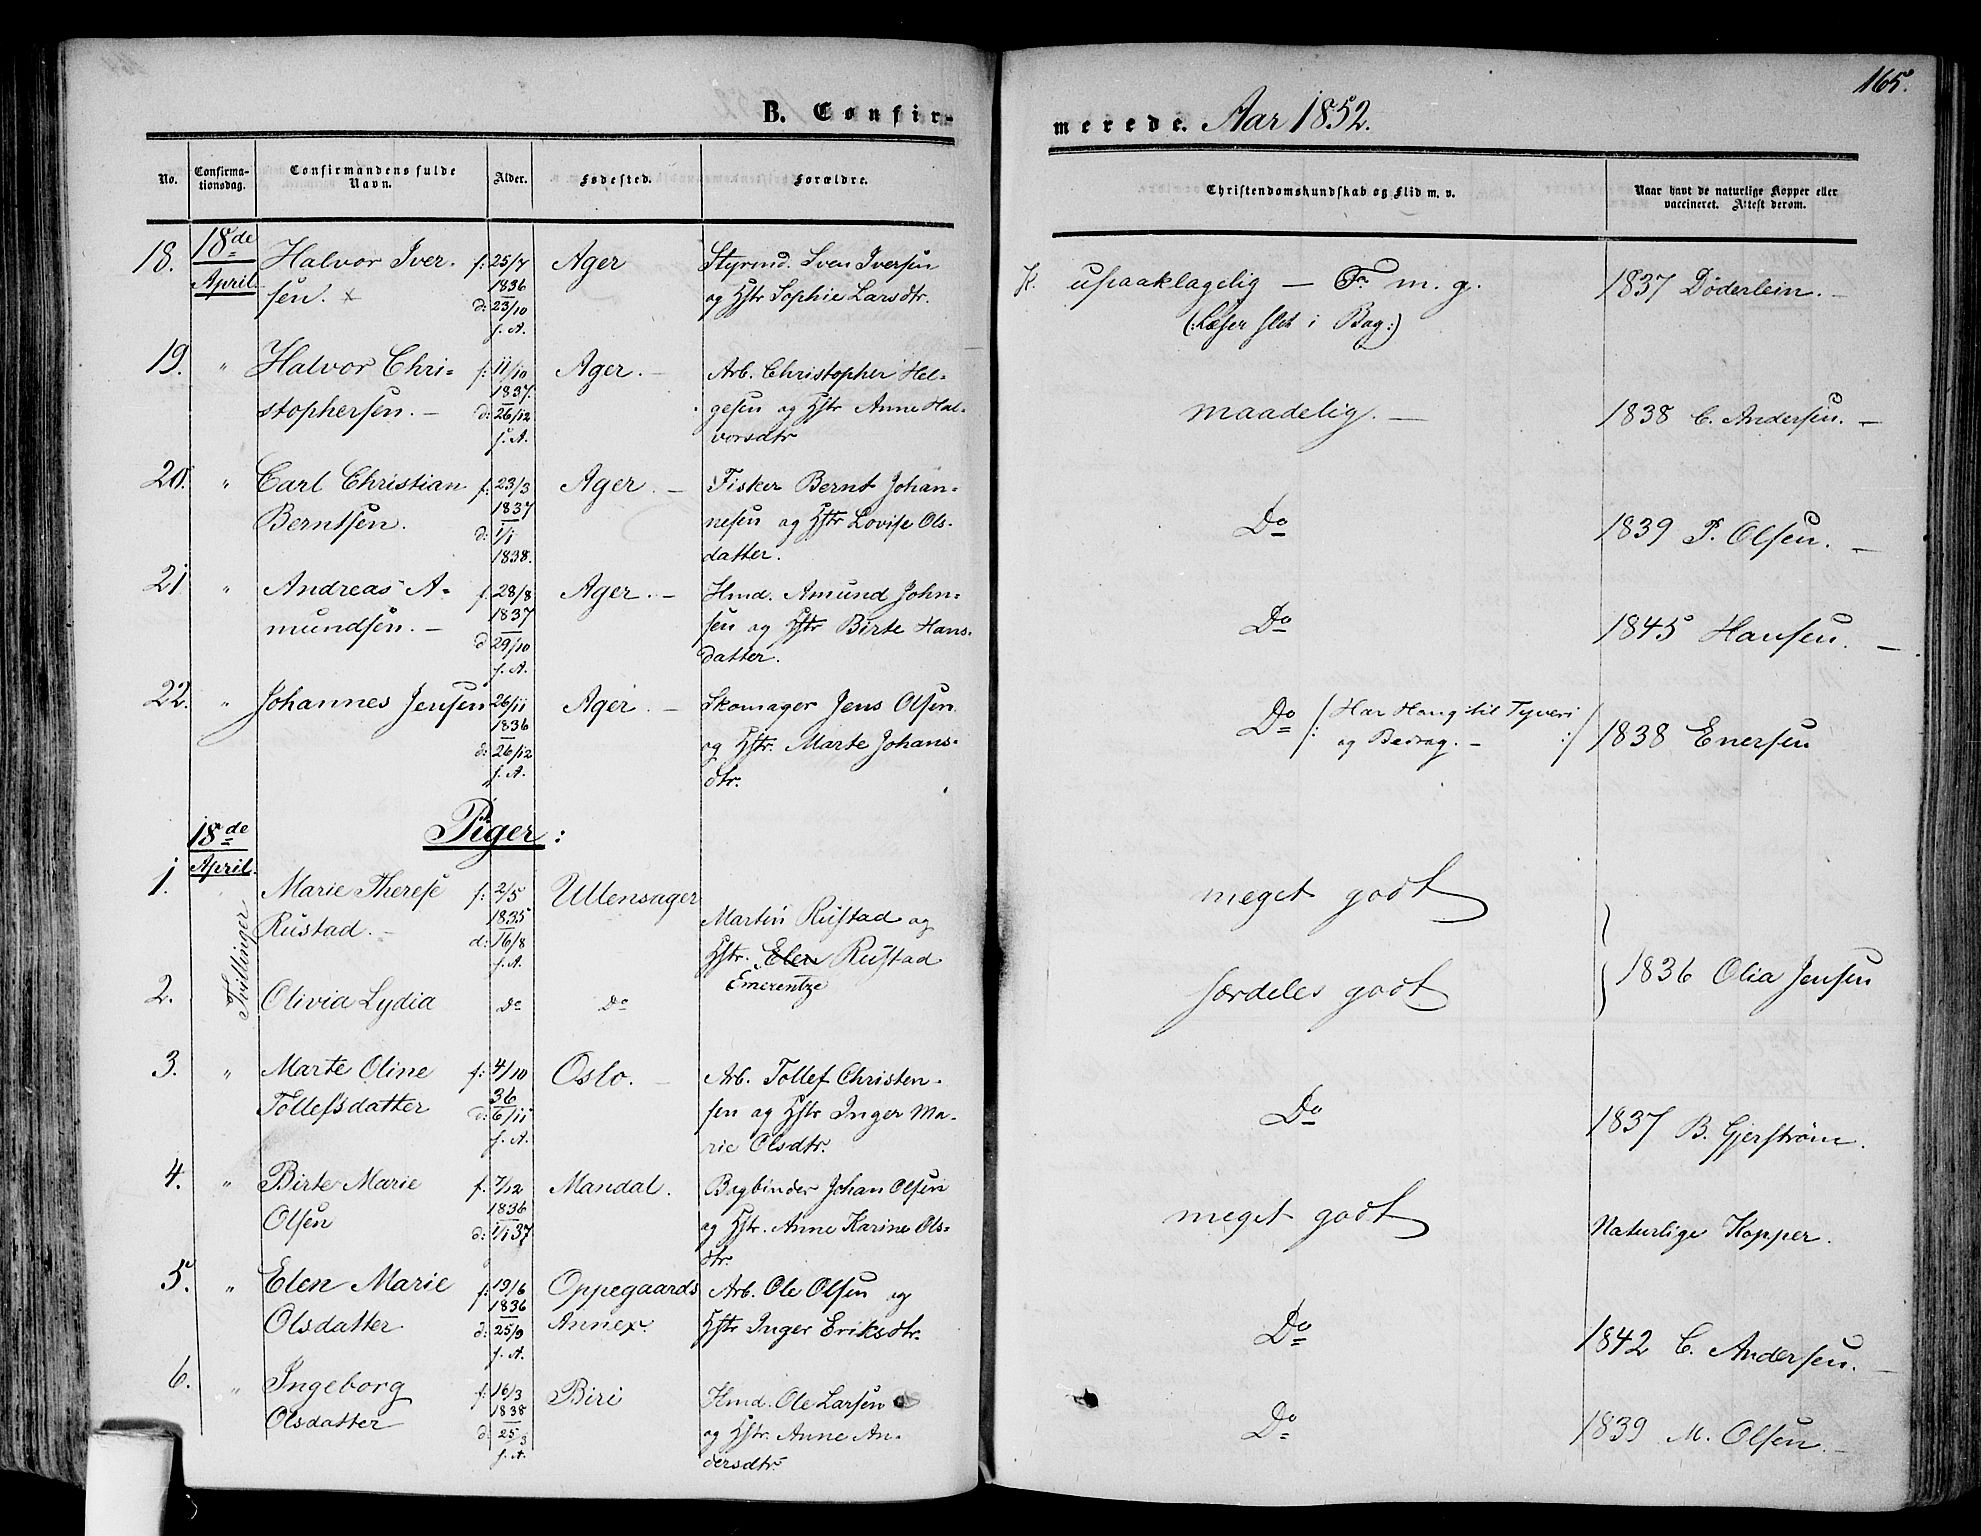 165.
B. Confir-
merede. Aar 1852.
No.
Confirma-
tionsdag.
Confirmandens fulde
Navn.
Alder.
Fødested.
Forældre.
Christendomskundskab og Flid m. v.
Naar havt de naturlige Kopper eller
vaccineret. Attest derom.
18.
18de
April.
Halvor Iver-
sen. x
f: 25/7
1836
d: 23/10
s. A.
Ager
Styrmd. Sven Iversen
og Hstr Sophie Larsdtr.
K. upaaklagelig — F. m. g.
(:Læser slet i Bog:)
1837 Döderlein. —
19.
"
Halvor Chri-
stophersen. —
f: 11/10
1837.
d: 26/12
s. A.
Ager. —
Arb. Christopher Hel-
gesen og Hstr Anne Hal-
vorsdtr
maadelig. —
1838 C. Andersen. —
20.
"
Carl Christian
Berntsen.
f: 23/3
1837
d: 1/1
1838.
Ager. —
Fisker Bernt Johan-
nesen og Hstr Lovise Ols-
datter.
Do
1839 P. Olsen. —
21
"
Andreas A-
mundsen. —
f: 28/8
1837
d: 29/10
s. A.
Ager. —
Hmd. Amund John-
sen og Hstr Birte Hans-
datter.
Do
1845 Hansen. —
22.
"
Johannes Jensen
26/11
1836
d: 26/12
s. A.
Ager. —
Skomager Jens Olsen
og Hstr. Marte Johans-
dtr.
Do /: Har Hang til Tyveri
og Bedrag. — :/
1838 Enersen
Piger:
18de
April.
1.
Tvillinger
Marie Therese
Rustad. —
f: 2/5
1835
d: 16/8
s. A.
Ullensager
Martin Rustad og
Hstr. Elen Rustad
Emerentze
meget godt
1836 Olia Jensen
2.
Olivia Lydia
Do
Do
særdeles godt
3.
"
Marte Oline
Tollefsdatter
f: 4/10
36
d: 6/11
s. A.
Oslo. —
Arb. Tollef Christen-
sen og Hstr Inger Ma-
rie Olsdtr.
Do
1837 B. Gjerstrøm.
4.
"
Birte Marie
Olsen
f. 7/12
1836
d: 1/1 37
Mandal.
Bogbinder Johan Olsen
og Hstr. Anne Karine Ols-
dtr.
meget godt
Naturlige Kopper.
5.
"
Elen Marie
Olsdatter
f: 19/6
1836
d: 25/9
s. A.
Oppegaards
Annex.
Arb. Ole Olsen og
Hstr Inger Eriksdtr.
Do
1842 C. Andersen. —
6.
"
Ingeborg
Olsdatter
f: 16/3
1838
d: 25/3
s. A.
Biri
Hmd. Ole Larsen
og Hstr. Anne An-
dersdtr.
Do
1839 M. Olsen. —